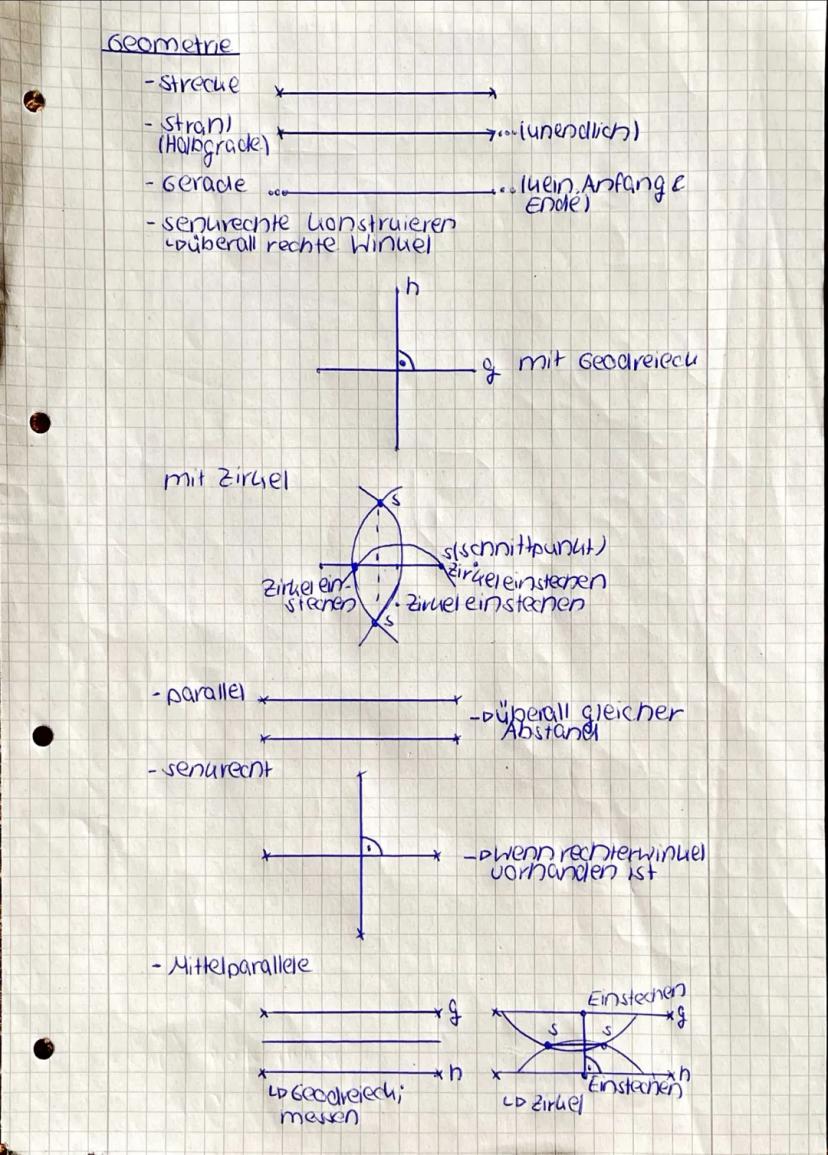 Geometrie
- Strecke
- Strahl ...(unendlich)
(Halbgrade)
- Gerade ... ...(kein Anfang &
Ende)
- senkrechte konstruieren
↳ überall rechte Winkel
h
g mit Geodreieck
mit Zirkel
s
s(schnittpunkt)
Zirkel einstechen
Zirkel ein-
stechen
Zirkel einstechen
s
- parallel
→ überall gleicher
Abstand
- senkrecht
→ wenn rechter winkel
vorhanden ist
- Mittelparallele
g
h
↳ Geodreieck;
messen
Einstechen
g
s s
h
Einstechen
↳ Zirkel